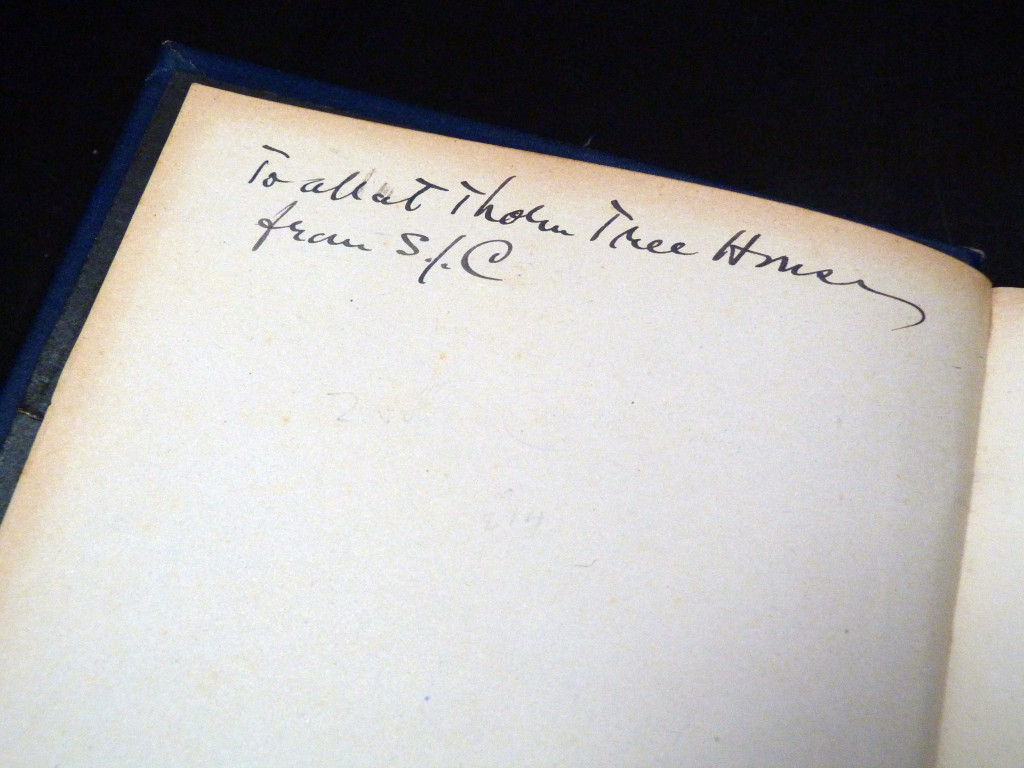 To all at Thorn Tree House
from S.J.C